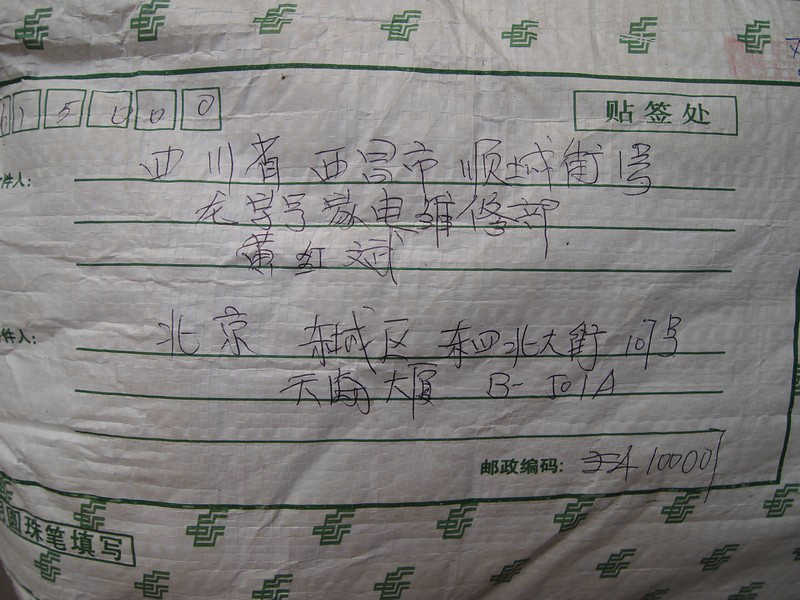 615000
贴签处
件人：
四川省 西昌市 顺城街1号
龙亨家电维修部
黄红斌
件人：
北京 东城区 东四北大街107号
天海大厦 B-501A
邮政编码： 10000
圆珠笔填写